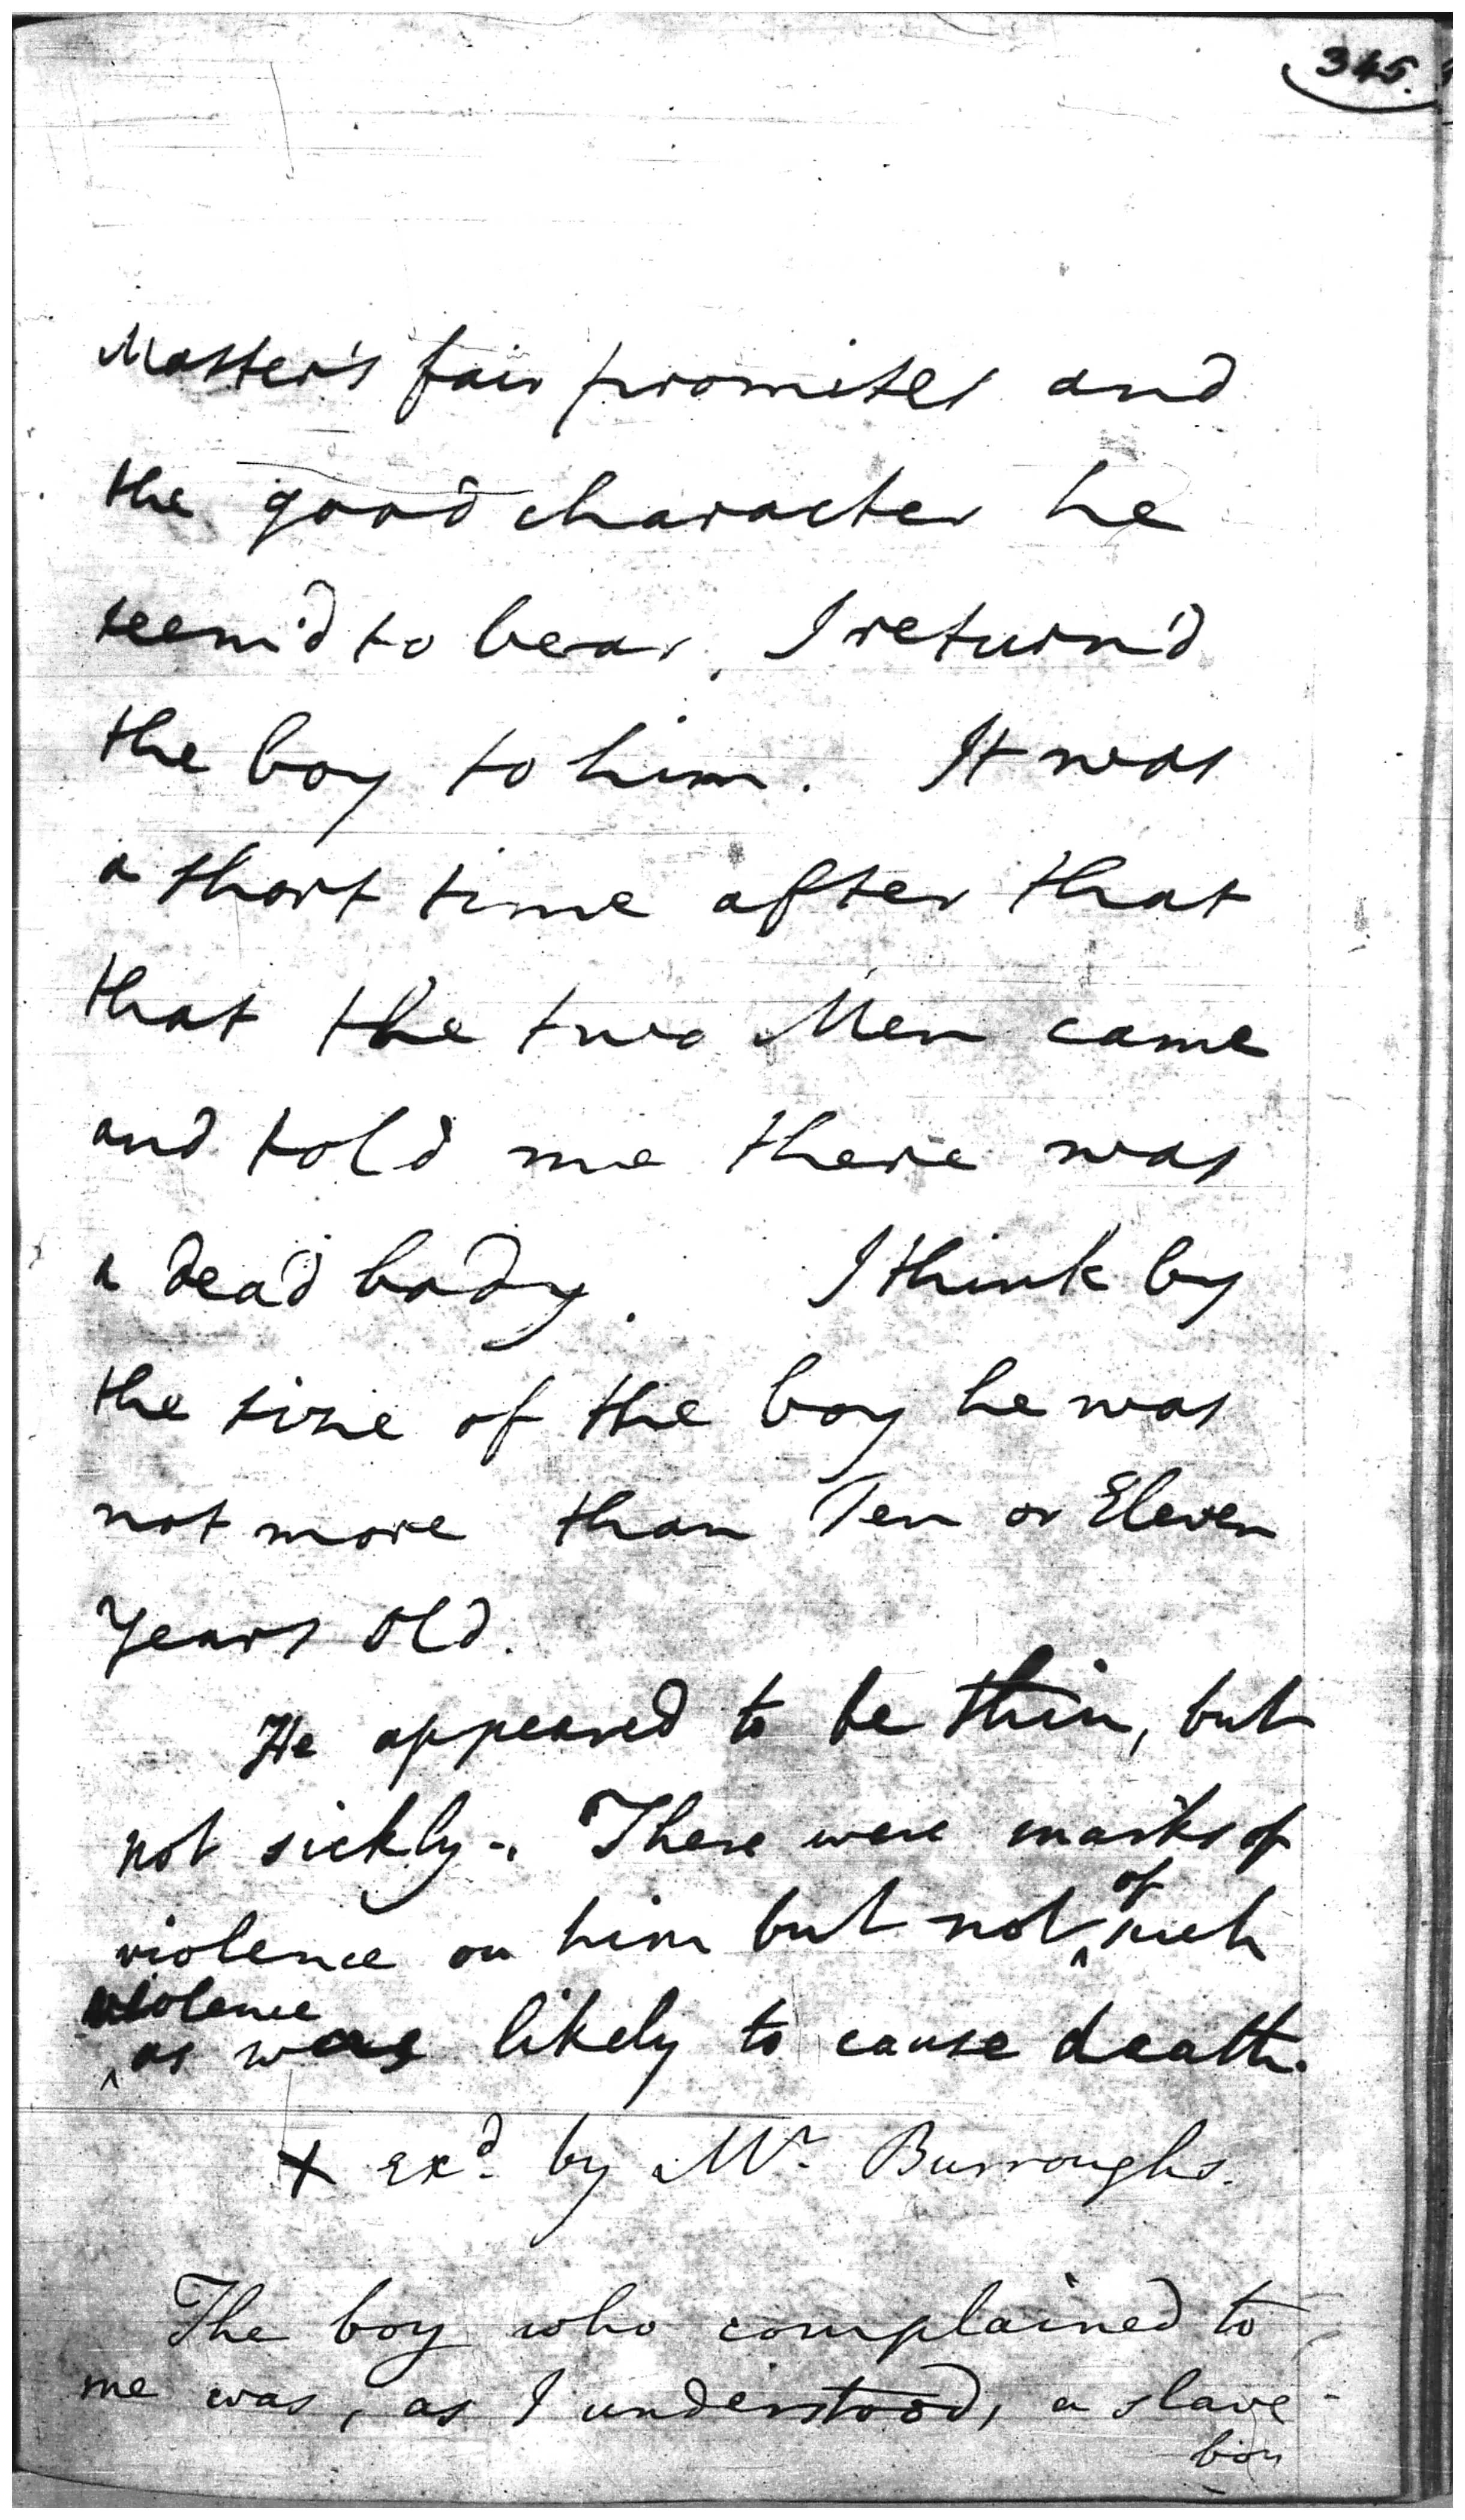 345.
Master's fair promises and
the good character he
seem'd to bear, I return'd
the boy to him. It was
a short time after that
that the two Men came
and told me there was
a dead body. I think by
the size of the boy he was
not more than Ten or Eleven
Years old.
He appeared to be thin, but
not sickly -. There were marks of
of
violence on him but not ^ such
violence
^ as was likely to cause death.
X exd. by Mr. Burroughs.
The boy who complained to
me was, as I understood, a slave -